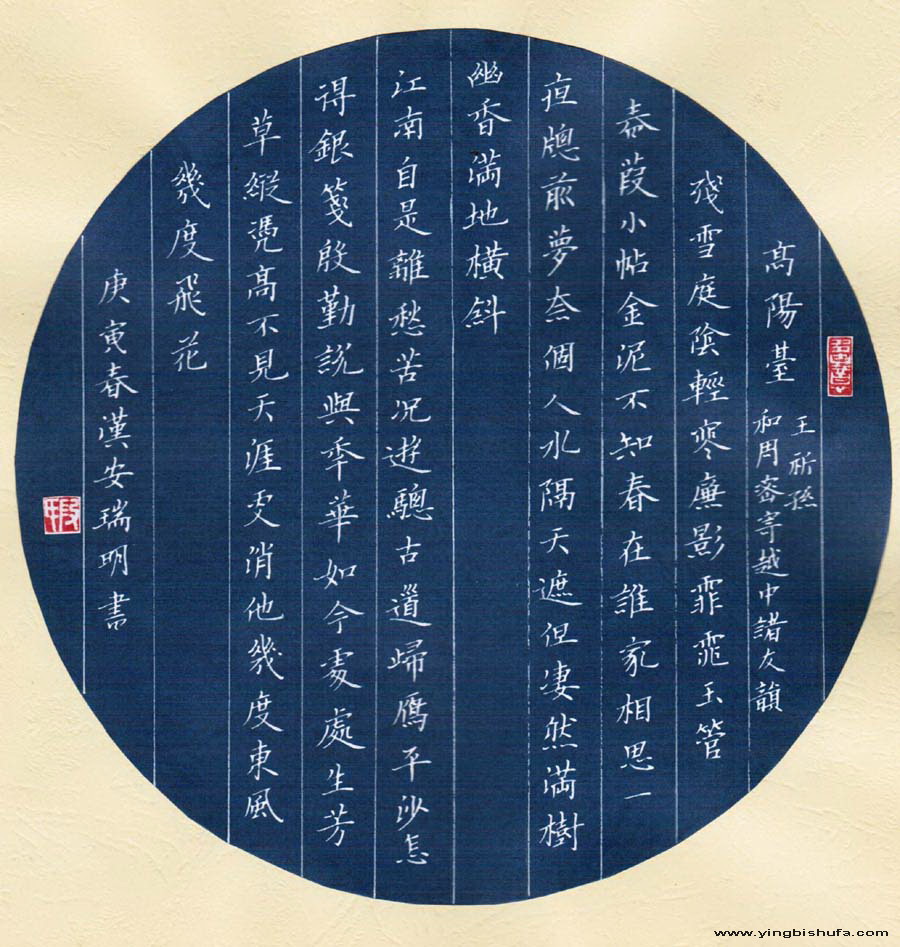 高陽臺
王祈孫
和周密寄越中諸友韻
殘雪庭陰輕寒廉影霏霏玉管
春葭小帖金泥不知春在誰家相思一
夜牕前夢奈個人水隔天遮但凄然満樹
幽香満地橫斜
江南自是離愁苦况遊驄古道歸鴈平沙怎
得銀箋殷勤說與年華如今處處生芳
草縱憑高不見天涯更消他幾度東風
幾度飛花
庚寅春漢安瑞明書
www.yingbishufa.com